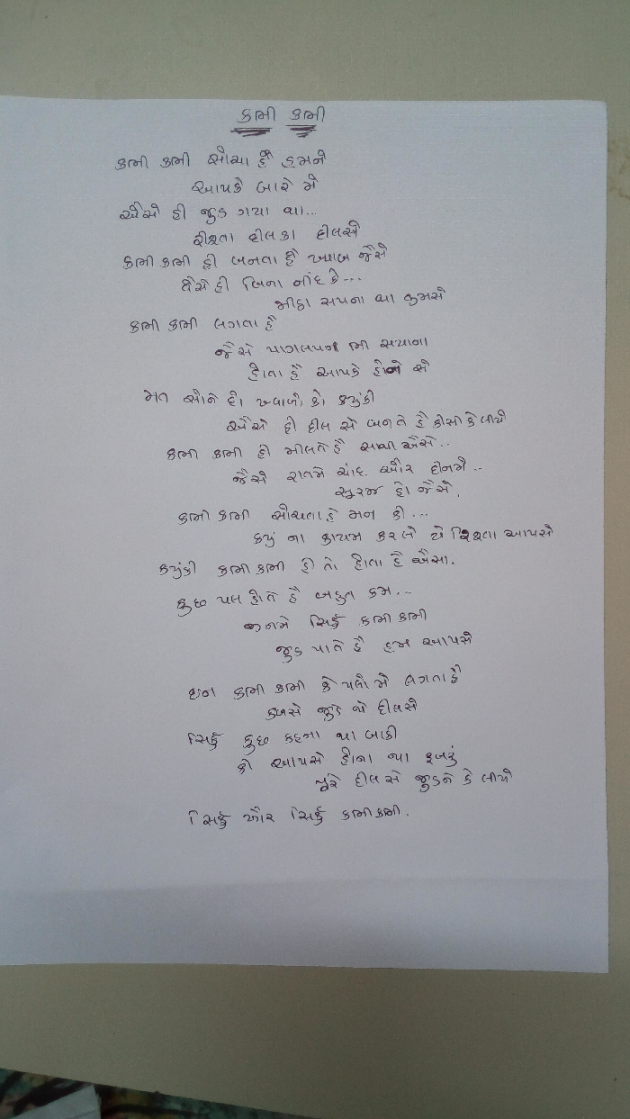 કભી કભી
કભી કભી સોચા હૈ હમને
આપકે બારે મે
ઐસે હી જુડ ગયા થા...
રીશ્તા દીલકા દીલસે
કભી કભી હી બનતા હૈ ખ્વાબ જૈસે
વૈસે હી બિના નીંદ કે...
મીઠા સપના થા તુમસે
કભી કભી લગતા હૈ
જૈસે પાગલપન ભી સયાના
હોતા હૈ આપકે હોને સે
મત સોને દો ખ્વાબો કો ક્યુંકી
ઐસે હી દીલ સે બનતે હૈ કીસી કે લીયે
કભી કભી હી મીલતે હૈ સાથી ઐસે..
જૈસે રાતમે ચાંદ ઔર દીનમે..
સૂરજ હો જૈસે.
કભી કભી સોચતા હે મન કી...
ક્યું ના કાયમ કરલે યે રિશ્તા આપસે
ક્યુંકી કભી કભી હી તો હોતા હૈ ઐસા.
કુછ પલ હોતે હૈ બહુત કમ...
જીનમે સિર્ફ કભી કભી
જુડ પાતે હૈ હમ આપસે
ઇન કભી કભી કે પલો મે લગતા હૈ
જુડે થે દીલસે
સિર્ફ કુછ કહના થા બાકી
કી આપસે હોના થા
પૂરે દીલ સે જુડને કે લીયે
સિર્ફ ઔર સિર્ફ કભી કભી.